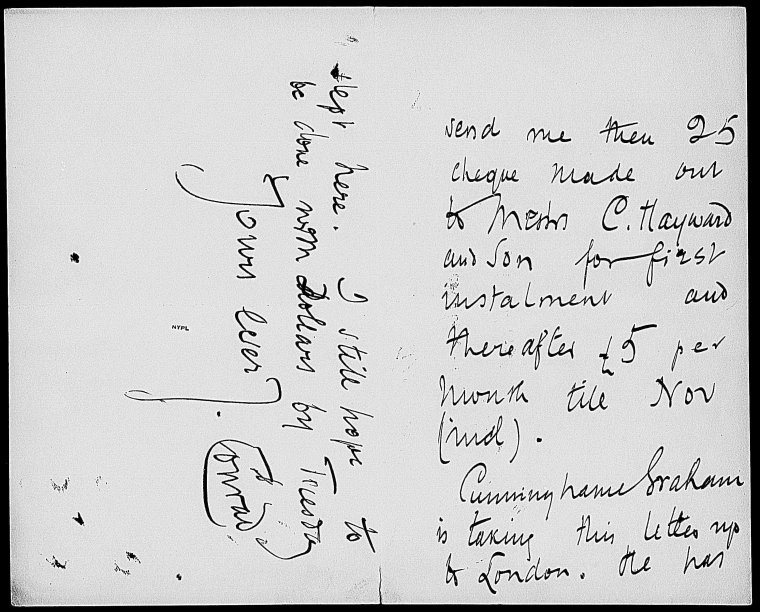 send me then 25
cheque made out
to Messrs C. Hayward
and Son for first
instalment and
thereafter £5 per
month till Nov
(incl).
Cunninghame Graham
is taking this letter up
to London. He has
slept here. I still hope to
be done with Dollars by Tuesday
Yours ever
Conrad
NYPL